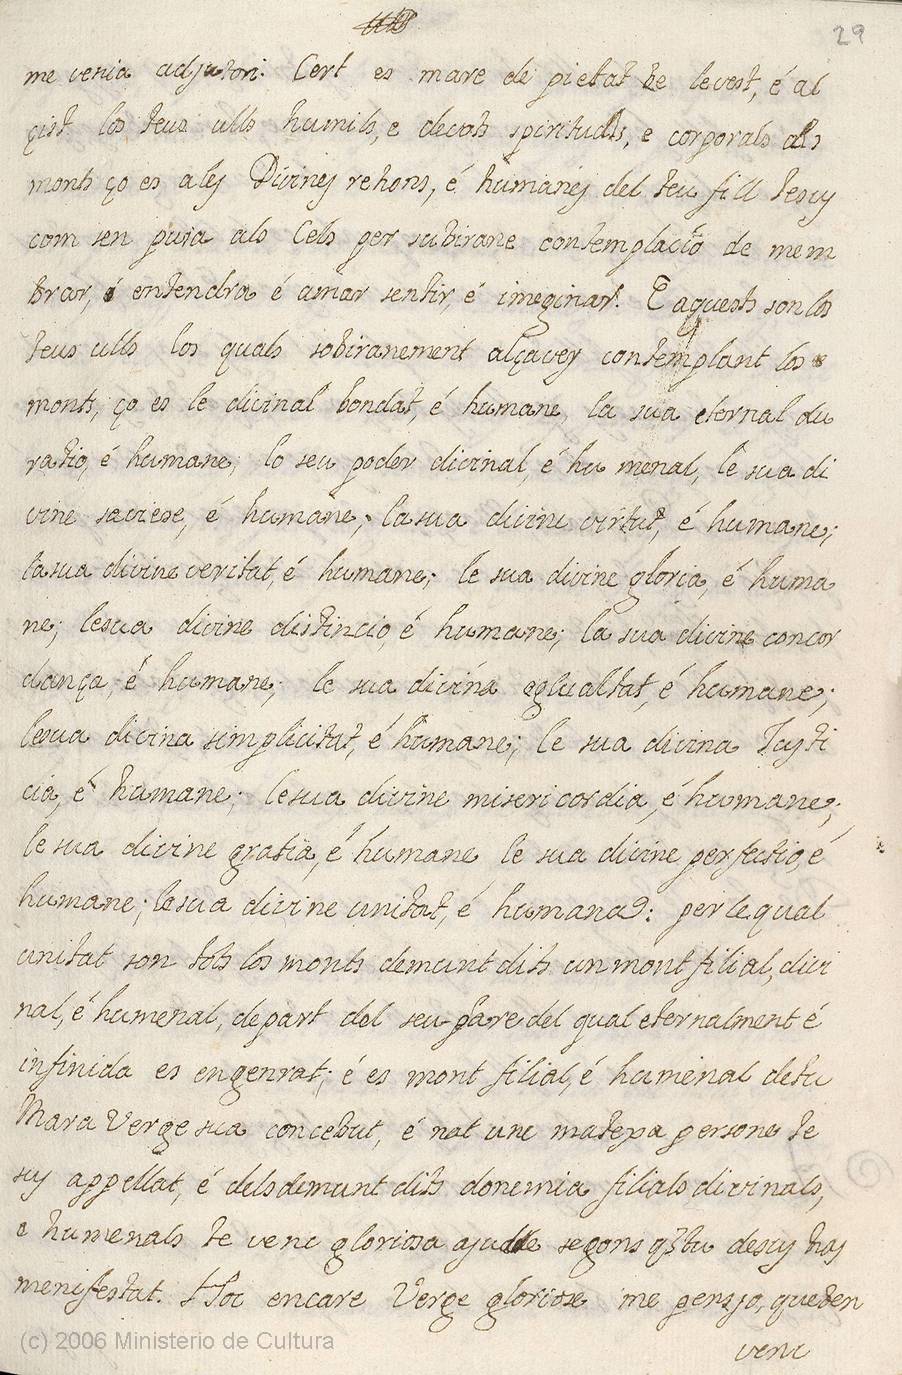 29
me venia adjutori. Cert es mare de pietat be levest, é al
çist los teus ulls humils, e devots spirituals, e corporals als
monts ço es a les Divines rehons, é humanes del teu fill Jesuy
com sen puia als Cels per subirane contemplació de mem
brar, é entendra é amar sentir, é imeginar. E aquests son los
teus ulls los quals sobiranement alçavey contemplant los
monts, ço es le divinal bondat, é humane, la sua eternal du
ratio, é humane, lo seu poder divinal, é hu menal, le sua di
vine saviese, é humane; la sua divine virtut, é humane;
la sua divine veritat, é humane; le sua divine gloria, é huma
ne; le sua divine distincio, é humane; la sua divine concor
dança, é humane; le sua divina egualtat, é humane;
le sua divina simplicitat, é humane; le sua divina Justi
cia, é humane; le sua divine misericordia, é humane;
le sua divine gratia, é humane le sua divine perfectio, é
humane; le sua divine unitat, é humana: per le qual
unitat son tots los monts demunt dits un mont filial, divi
nal, é humenal, de part dol seu Pare del qual eternalment é
infinida es engenrat; é es mont filial, é humenal de tu
Mara Verge sua concebut, é nat une matexa persone Je
suy appellat, é dels demunt dits donemia filials divinals,
e humenals te venc gloriosa ajude segons q̃ tu desuy has
menifestat. Hoc encare Verge gloriose me penso, que den
venc
(c) 2006 Ministerio de Cultura